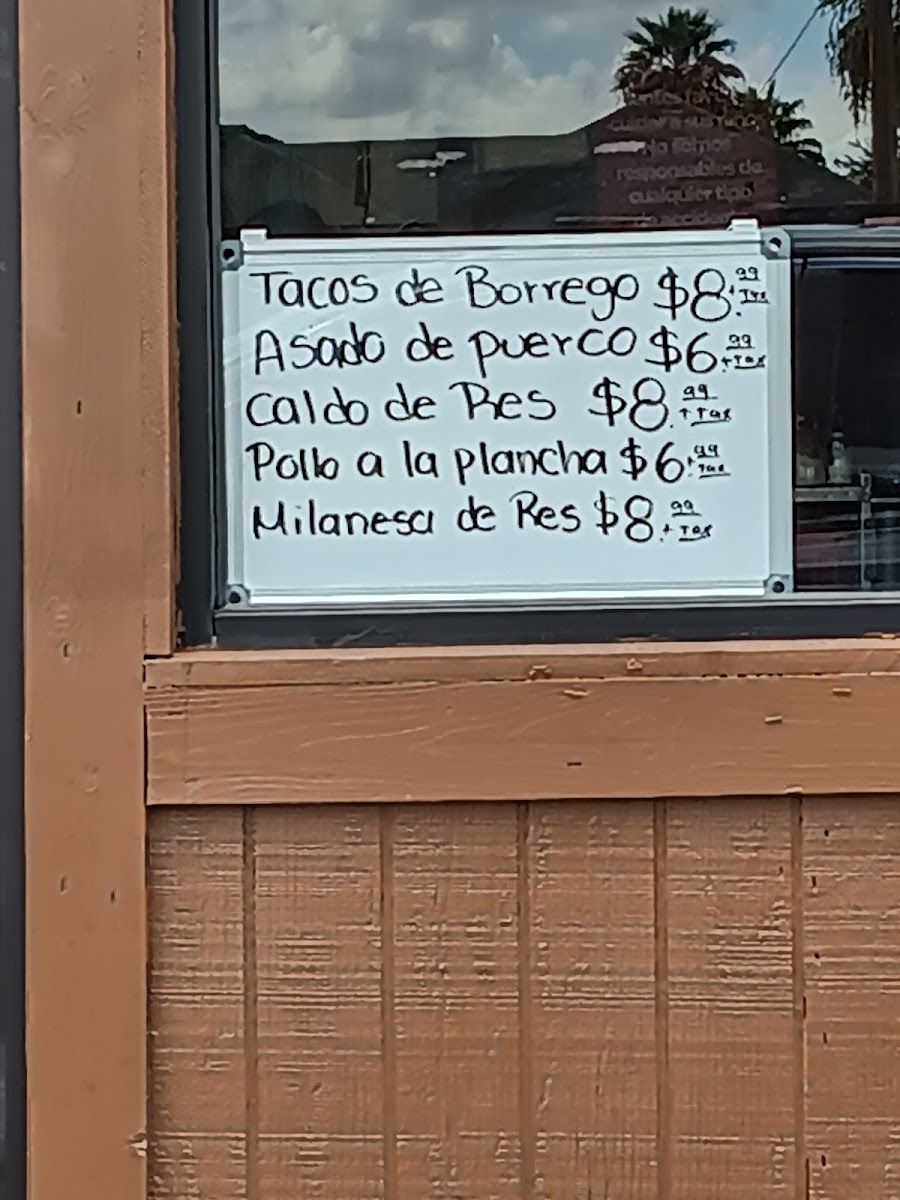 cuidar a sus niños
No somos
responsables de
cualquier tipo
de accidente
Tacos de Borrego $8.99 + Tax
Asado de puerco $6.99 + Tax
Caldo de Res $8.99 + Tax
Pollo a la plancha $6.99 + Tax
Milanesa de Res $8.99 + Tax